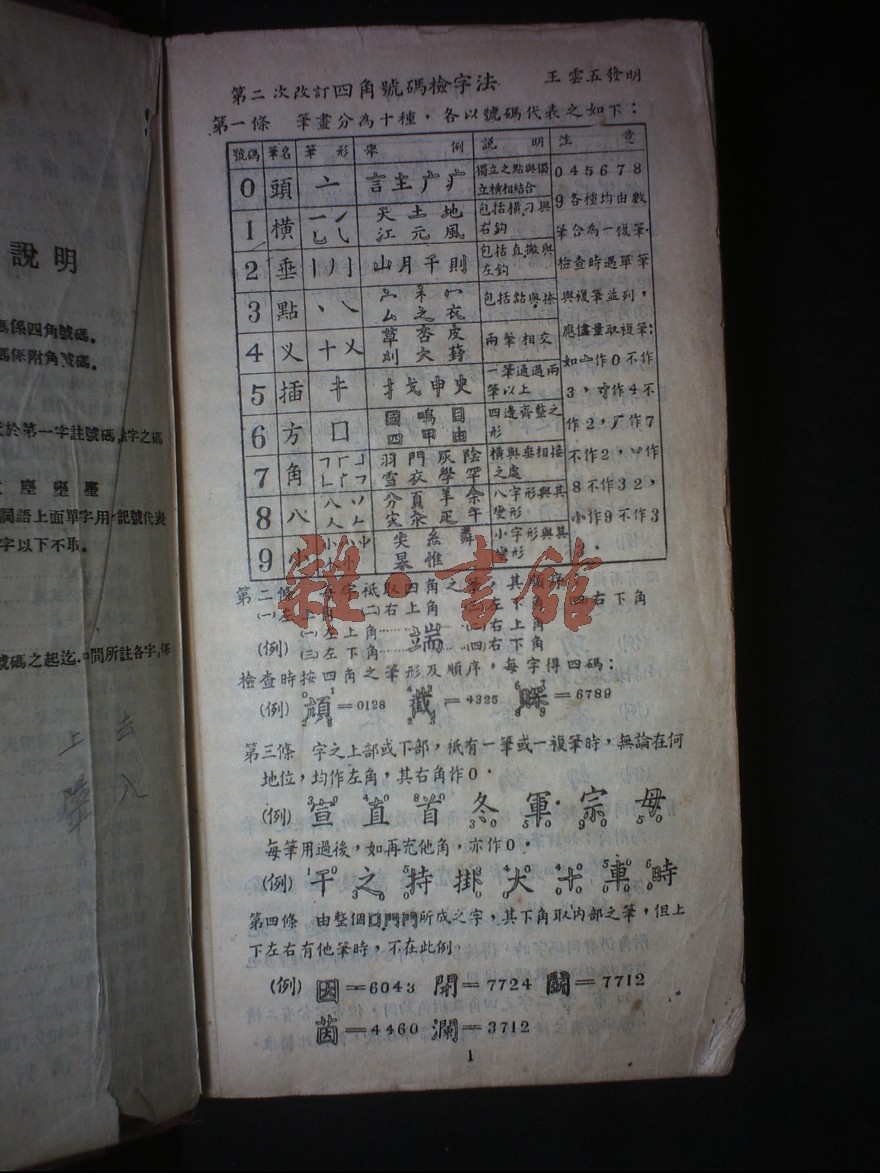 第二次改訂四角號碼檢字法 王雲五發明
第一條 筆畫分為十種，各以號碼代表之如下：
號碼 筆名 筆形 舉例 説明 注意
0 頭 亠 言主广疒 獨立之點與獨立橫相結合
1 橫 一㇀ 天土地 江元風 包括橫刁與右鈎
2 垂 丨丿亅 山月千則 包括直撇與左鈎
3 點 丶㇏ 厶之衣 包括點與捺
4 叉 十乂 草杏皮 刈大葑 兩筆相交
5 插 扌戈申史 一筆通過兩筆以上
6 方 口 國鳴目 四甲由 四邊齊整之形
7 角 羽門灰陰 雪衣學罕 橫與垂相接之處
8 八 八丷人 分頁羊余 災汆疋午 八字形與其變形
9 小 尖糸 杲惟 小字形與其變形
0 4 5 6 7 8
9 各種均由數
筆合為一複筆。
檢查時遇單筆
與複筆並列，
應儘量取複筆；
如亠作0不作
3，寸作4不
作2，厂作7
不作2，丷作
8不作32，
小作9不作3
3。
第二條 每字祇取四角之筆，其順序
㈠左上角 ㈡右上角 ㈢左下角 ㈣右下角
(例) ㈠左上角 端 ㈡右上角
㈢左下角 ㈣右下角
檢查時按四角之筆形及順序，每字得四碼：
(例) 顏=0128 截=4325 =6789
第三條 字之上部或下部，祇有一筆或一複筆時，無論在何
地位，均作左角，其右角作0。
(例) 宣 直 首 冬 軍 宗 母
每筆用過後，如再充他角，亦作0。
(例) 干 之 持 掛 大 十 車 時
第四條 由整個囗門鬥所成之字，其下角取內部之筆，但上
下左右有他筆時，不在此例。
(例) 因=6043 閉=7724 鬭=7712
茵=4460 瀾=3712
1
説明
碼係四角號碼。
碼係附角號碼。
於第一字註號碼
詞語上面單字用
記號代表
字以下不取。
號碼之起迄。中間所註各字，係
上 去
入
雜·書館